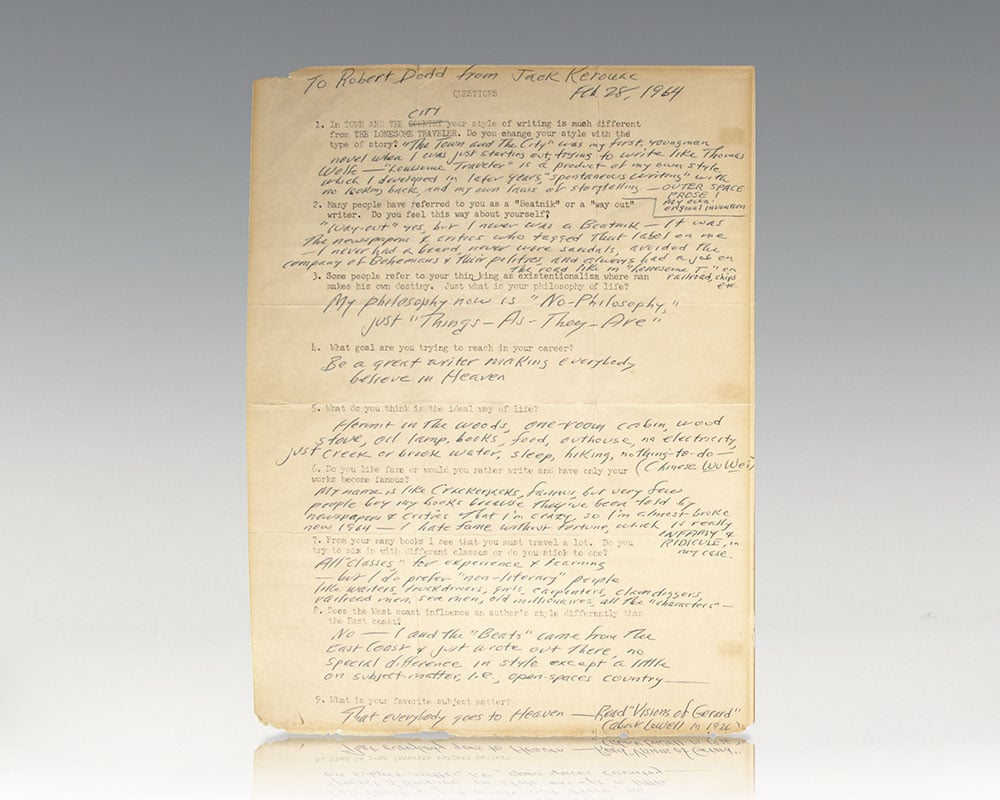 To Robert Dodd from Jack Kerouac
Feb 28, 1964
QUESTIONS
CITY
1. In TOWN AND THE COUNTRY your style of writing is much different
from THE LONESOME TRAVELER. Do you change your style with the
type of story? "The Town and The City" was my first, youngman
novel when I was just starting out, trying to write like Thomas
Wolfe — "Lonesome Traveler" is a product of my own style
which I developed in later years, "spontaneous writing" with
no looking back, and my own laws of storytelling — OUTER SPACE
PROSE!
My own
original invention
2. Many people have referred to you as a "Beatnik" or a "way out"
writer. Do you feel this way about yourself?
"Way-out" yes, but I never was a Beatnik — It was
The newspapers & critics who tagged that label on me
— I never had a beard, never wore sandals, avoided the
company of Bohemians & their politics, and always had a job on
the road like in "Lonesome T." on
railroad, ships
etc.
3. Some people refer to your thin king as existentionalism where man
makes his own destiny. Just what is your philosophy of life?
My philosophy now is "No-Philosophy,"
just "Things-As-They-Are"
4. What goal are you trying to reach in your career?
Be a great writer making everybody
believe in Heaven
5. What do you think is the ideal way of life?
Hermit in the woods, one-room cabin, wood
stove, oil lamp, books, food, outhouse, no electricity,
just creek or brook water, sleep, hiking, nothing-to-do —
(Chinese Wu Wei)
6. Do you like fame or would you rather write and have only your
works become famous?
My name is like Crackerjacks, famous, but very few
people buy my books because they've been told by
newspapers & critics that I'm crazy, so I'm almost broke
now 1964 — I hate fame without fortune, which is really
INFAMY &
RIDICULE, in
my case.
7. From your many books I see that you must travel a lot. Do you
try to mix in with different classes or do you stick to one?
All "classes," for experience & learning
— but I do prefer "non-literary" people
like waiters, truckdrivers, girls, carpenters, clam diggers,
railroad men, sea men, old millionaires, all the "characters" —
8. Does the West coast influence an author's style differently than
the East coast?
No — I and the "Beats" came from the
East Coast & just wrote out there, no
special difference in style except a little
on subject-matter, i.e., open-spaces country —
9. What is your favorite subject matter?
That everybody goes to Heaven — Read "Visions of Gerard"
(about Lowell in 1926)